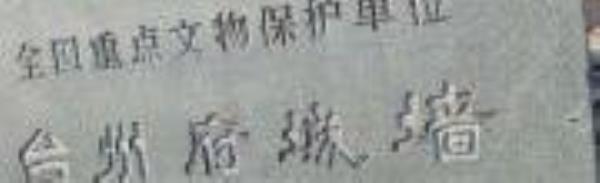 全国重点文物保护单位
台州府城墙